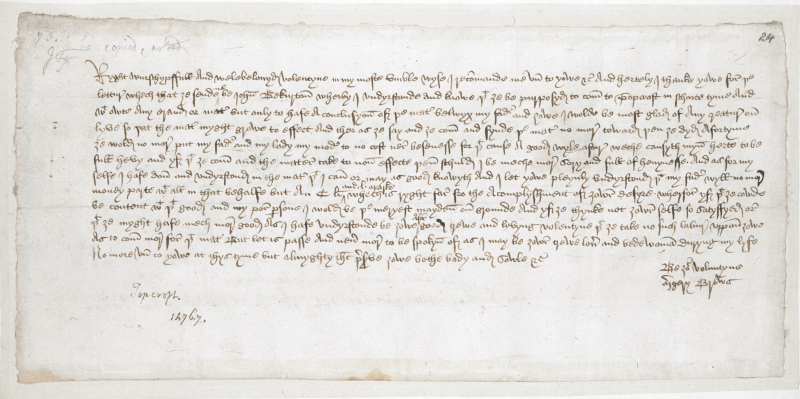 copied
24
Ryght wurschypffull and welebelouyd Volentyne in my moste vmble wyse I recommande me vn to yowe &c And hertely I thanke yowe for þe
lettur whech that ȝe sende me be John Bekurton wherby I vndyrstonde and knowe þt ȝe be purposyd to com to Topcroft in schorte tyme and
wt owte any erand or mater but only to hafe a conclusyon of þe mater betwyx my fadr and yowe I wolde be most glad of any creatur on
lyve so þat the mater myght growe to effect and ther as ȝe say and ȝe com and fynde þe mater no mor toward þen ȝe dyd afortyme
ȝe wold no mor put my fadr and my lady my modr to no cost ner besenesse for þt cause a good wyle aftur weche causyth myn herte to be
full hevy and yf þt ȝe com and the mater take to non effecte þen schuld I be meche mor sory and full of heuynesse And as for my
selfe I hafe don and vndyrstond in the mater þt I can or may as good knowyth And I lete yowe pleynly vndyrstond þt my fadr wyll no mor
money parte wt all in that behalfe but an C li and l marke whech is ryght far fro the acomplyshment of yowr desyre wherfor yf þt ȝe cowde
be content wt þt good and my por persone I wold be þe meryest mayden on grounde and yf ȝe thynke not yowr selfe so satysfyed or
þt ȝe myght hafe mech mor good as I hafe vndyrstonde be yowe afor good trewe and lovyng volentyne þt ȝe take no such labur vppon yowe
as to com mor for þt mater But let is passe and neuer mor to be spokyn of as I may be yowr trewe lover and bedewoman duryng my lyfe
No more vn to yowe at thys tyme but almyghty Jhu preserve yowe bothe body and sowle &c
Be yor Voluntyne
Mergery Brews
Topcroft.
1476/7.